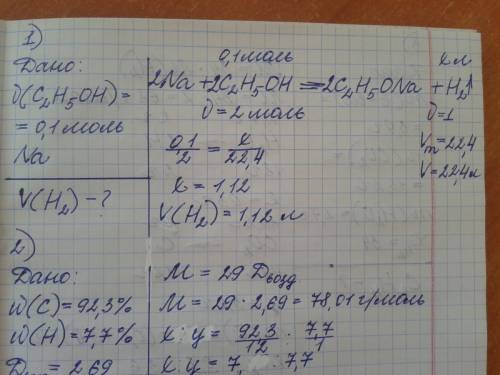 1)
Дано:
ν(C₂H₅OH)=
=0,1 моль
Na
V(H₂) - ?
0,1 моль x л
2Na + 2C₂H₅OH = 2C₂H₅ONa + H₂↑
ν = 2 моль ν = 1
Vm = 22,4
V = 22,4 л
0,1/2 = x/22,4
x = 1,12
V(H₂) = 1,12 л
2)
Дано:
ω(C) = 92,3%
ω(H) = 7,7%
= 2,69
M = 29 Dвозд
M = 29 · 2,69 = 78,01 г/моль
x : y = 92,3/12 : 7,7/1
x : y = 7, : 7,7